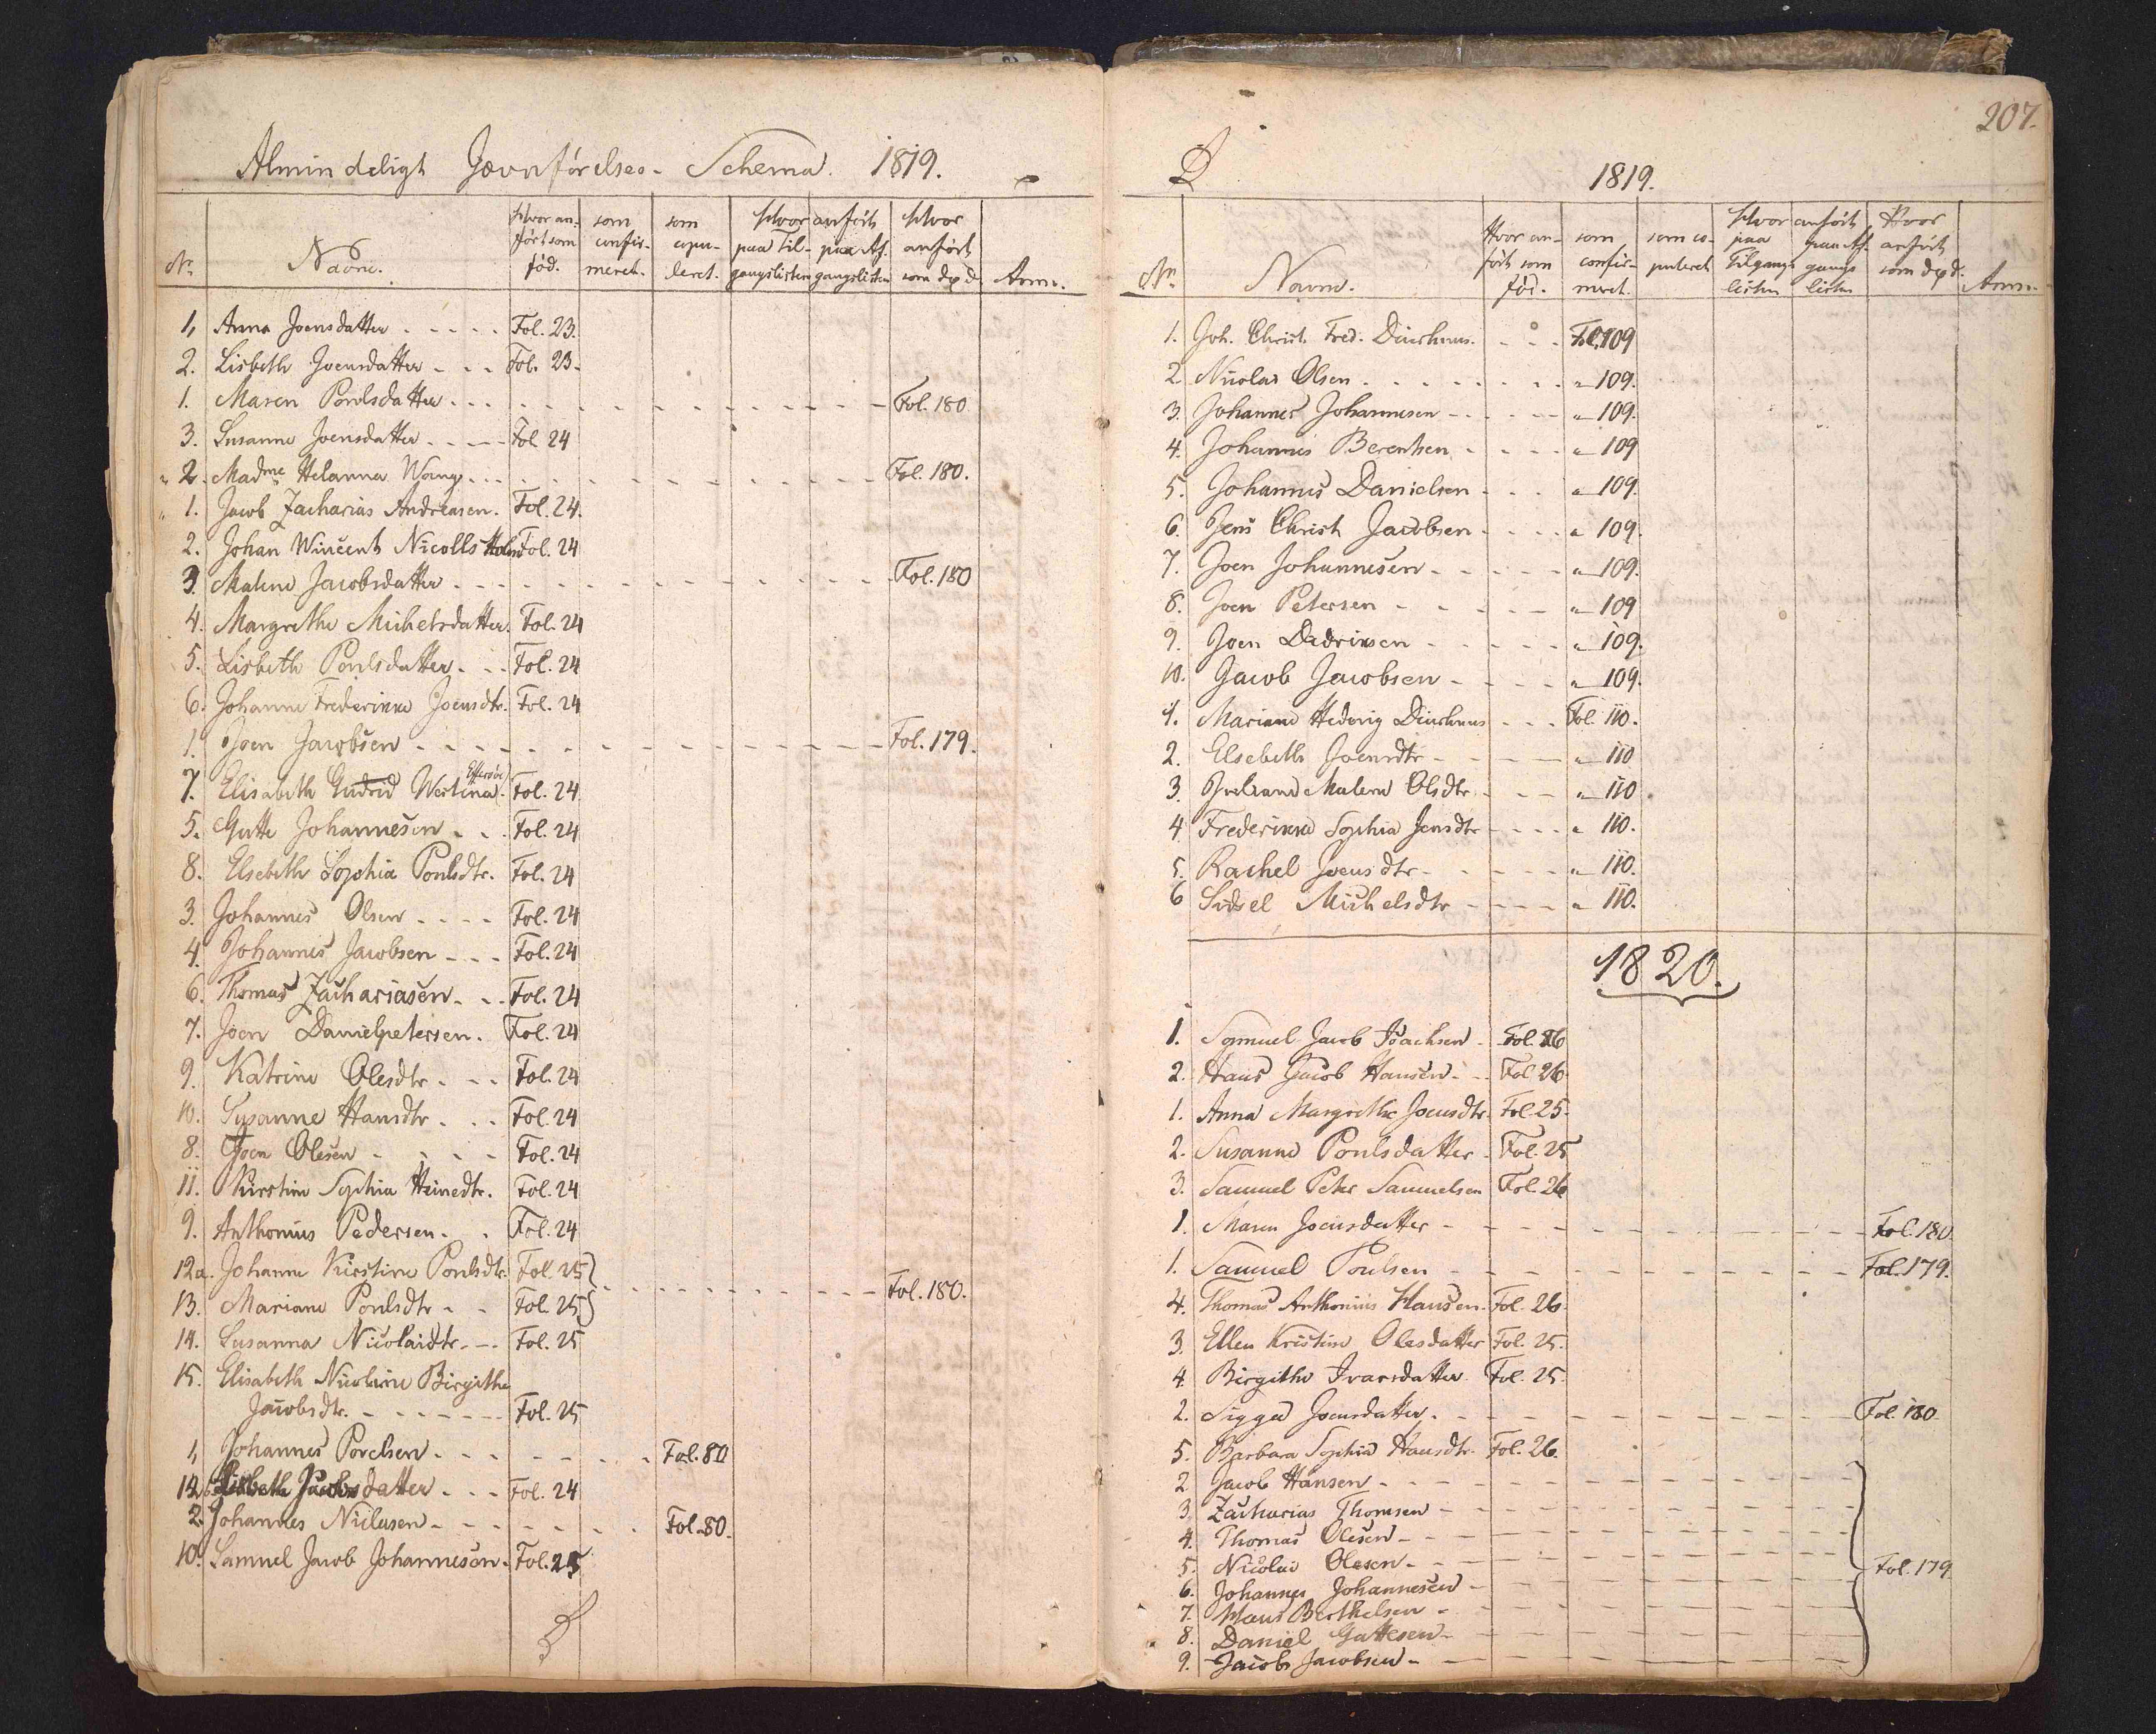 Almindeligt Jævnførelses- Schema. 1819.
Nr. Navne. Hvor anført som fød. som confirmeret. som copuleret. Hvor anført paa Tilgangslisten paa Afgangslisten Hvor anført som død Anm.
1, Anna Joensdatter . . . . . Fol. 23.
2. Lisbeth Joensdatter - . . Fol. 23.
1. Maren Poulsdatter . . . Fol. 180
3. Susanne Joensdatter . - - - Fol 24
2. Madme Helanna Wang . . . Fol. 180.
1. Jacob Zacharias Andreasen. Fol. 24.
2. Johan Wincent Nicolls Holm Fol. 24
3. Malene Jacobsdatter . . . Fol. 180
4. Margrethe Michelsdatter. Fol. 24
5. Lisbeth Poulsdatter. . . Fol. 24
6. Johanne Frederikke Joensdtr. Fol. 24
1. Joen Jacobsen - - - Fol. 179.
7. Elisabeth Gudrid Westina. Fol. 24
5. Gutte Johannesen . . . Fol. 24
8. Elsebeth Sophia Poulsdtr. Fol. 24
3. Johannes Olsen . . . . Fol. 24
4. Johannes Jacobsen - - . Fol. 24
6. Thomas Zachariasen. . . Fol. 24
7. Joen Danielpetersen. Fol. 24
9. Katrine Olesdtr. . . Fol. 24
10. Susanne Hansdtr . . . Fol. 24
8. Joen Olesen - - - - Fol. 24
11. Kirstine Sophia Heinedtr. Fol. 24
9. Anthonius Pedersen. . Fol. 24
12a. Johanne Kirstine Poulsdtr. Fol. 25
13. Mariane Poulsdtr - - Fol. 25 Fol. 180.
14. Susanna Nicolaidtr. - - Fol. 25
15. Elisabeth Nicoline Birgithe
Jacobsdtr. - - - - Fol. 25
1, Johannes Porelsen . . . Fol. 80
Lisbeth Jacobsdatter . . . Fol. 24
2. Johannes Niclasen - - - Fol. 80.
10. Samuel Jacob Johannesen. Fol. 25
207.
1819.
Nr. Navne. Hvor anført som fød. som confirmeret. som copuleret Hvor anført paa Tilgangs listen paa Afgangs listen Hvor anført som død. Anm.
1. Joh. Christ. Fred. Diurhuus. - - - Fol. 109
2. Nicolai Olsen . . . . - 109.
3. Johannes Johannesen - - - - 109.
4. Johannes Berentsen - - - - 109
5. Johannes Danielsen - - - 109.
6. Jens Christ Jacobsen - - - 109.
7. Joen Johannesen - - - - 109.
8. Joen Petersen - - - - 109
9. Joen Dedriksen - - - - 109.
10. Jacob Jacobsen - - - - 109.
1. Mariane Hedevig Diurhuus - - - Fol. 110.
2. Elsebeth Joensdtr - - - - 110
3. Malene Olsdtr. - - - 110
4 Frederikke Sophia Jensdtr - - - - 110.
5. Rachel Joensdtr - - - - 110.
6 Sidsel Michelsdtr - - - - 110.
1820.
1. Samuel Jacob Isachsen - Fol. 26
2. Hans Jacob Hansen - - Fol 26.
1. Anna Margrethe Joensdtr. Fol. 25.
2. Susanne Poulsdatter - Fol. 25
3. Samuel Peter Samuelsen Fol. 26
1. Maren Joensdatter - - - Fol. 180.
1. Samuel Poulsen - - - Fol. 179.
4. Thomas Anthonius Hansen. Fol. 26.
3. Ellen Kristine Olesdatter Fol. 25.
4. Birgithe Ivarsdatter Fol. 25.
2. Sigga Joensdatter. - - - Fol. 180.
5. Barbara Sophia Hansdtr. Fol. 26.
2. Jacob Hansen - - -
3. Zacharias Thomsen - - -
4. Thomas Olesen - - -
5. Nicolai Olesen - - - Fol. 179
6. Johannes Johannesen - - -
7. Hans Berthelsen - - -
8. Daniel Guttesen - - -
9. Jacob Jacobsen - - -